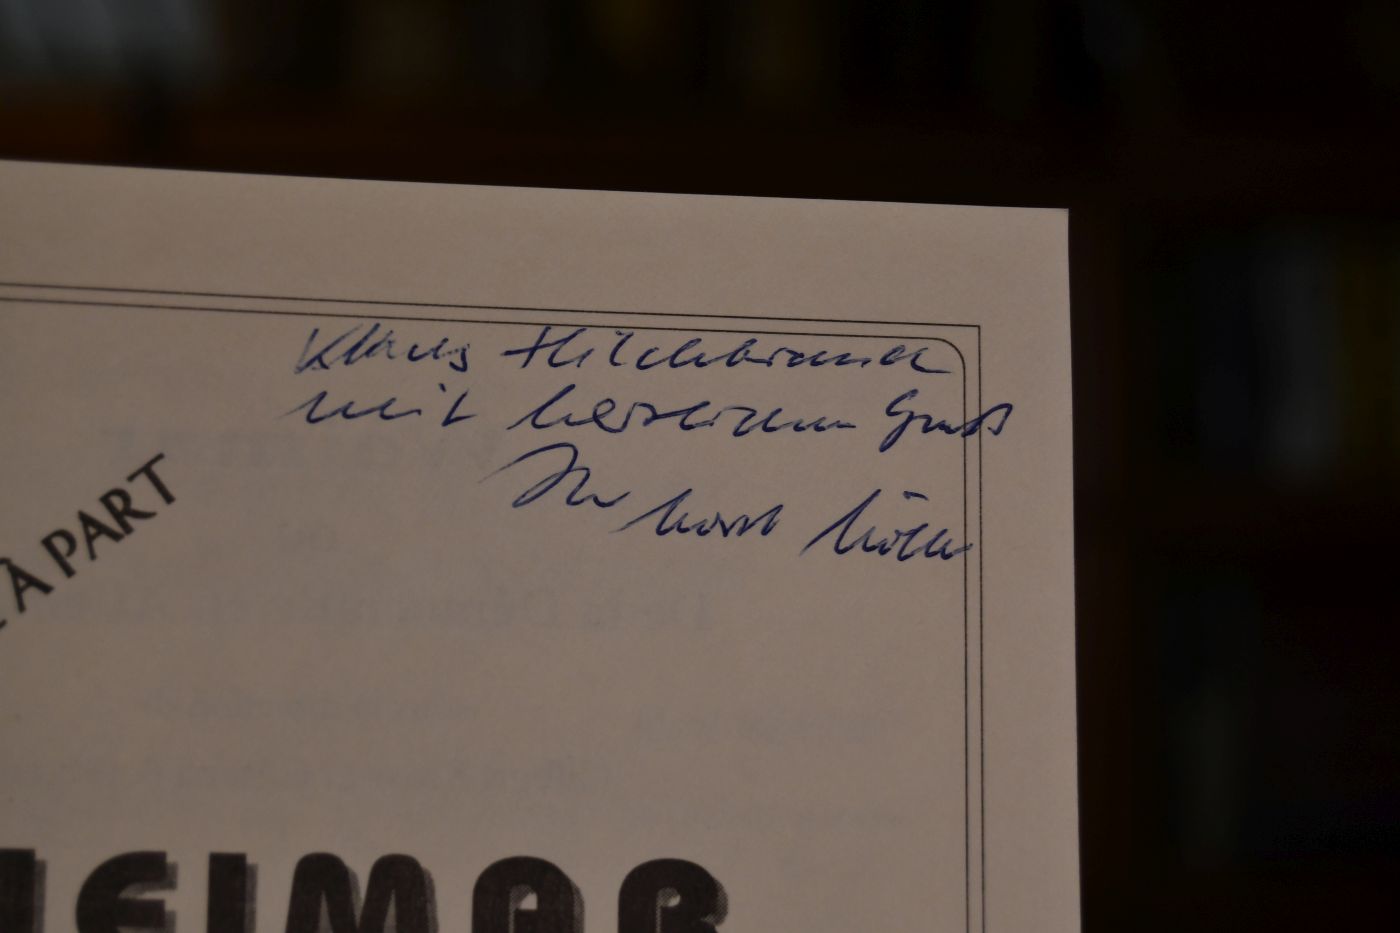 Klaus Hildebrand
mit herzlichem Gruß
Ihr Horst Möller
À PART
WEIMAR